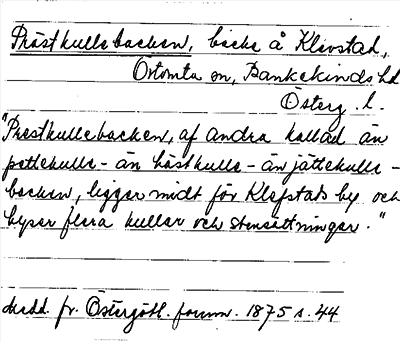 Prästkullebacken, backe å Klevstad,
Örtomta sn, Bankekinds hd
Österg. l.
"Prestkullebacken, af andra kallad än
pottekulle- än hästkulle- än jättekulle-
backen, ligger midt för Klefstads by och
hyser flera kullar och stensättningar."
Medd. fr. Östergötl. fornm. 1875 s. 44